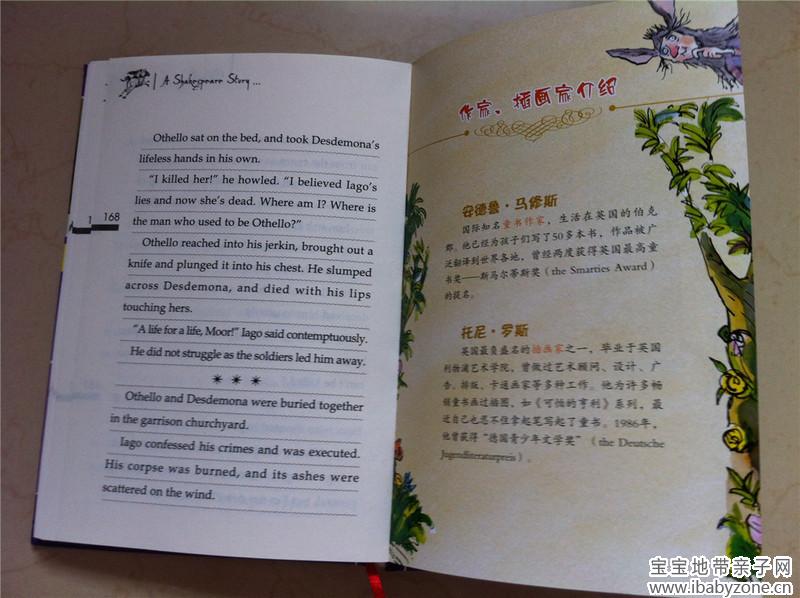 A Shakespeare Story ...
Othello sat on the bed, and took Desdemona's
lifeless hands in his own.
“I killed her!” he howled. “I believed Iago's
lies and now she's dead. Where am I? Where is
the man who used to be Othello?”
Othello reached into his jerkin, brought out a
knife and plunged it into his chest. He slumped
across Desdemona, and died with his lips
touching hers.
“A life for a life, Moor!” Iago said contemptuously.
He did not struggle as the soldiers led him away.
* * *
Othello and Desdemona were buried together
in the garrison churchyard.
Iago confessed his crimes and was executed.
His corpse was burned, and its ashes were
scattered on the wind.
168
作家、插画家介绍
安德鲁·马修斯
国际知名童书作家，生活在英国的伯克
郡。他已经为孩子们写了50多本书，作品被广
泛翻译到世界各地，曾经两度获得英国最高童
书奖——斯马尔蒂斯奖（the Smarties Award）
的提名。
托尼·罗斯
英国最负盛名的插画家之一，毕业于英国
利物浦艺术学院，曾做过艺术顾问、设计、广
告、排版、卡通画家等多种工作。他为许多畅
销童书画过插图，如《可怕的亨利》系列，最
近自己也忍不住拿起笔写起了童书。1986年，
他曾获得“德国青少年文学奖”（the Deutsche
Jugendliteraturpreis）。
宝宝地带亲子网
www.ibabyzone.cn